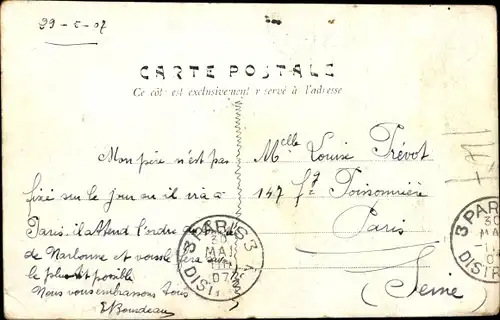 29-5-07
CARTE POSTALE
Ce côté est exclusivement réservé à l'adresse
Mon père n'est pas
fixé sur le jour où il ira à
Paris. il attend l'ordre
de Narbonne et vous fera
le plus possible
Nous vous embrassons tous
EBourdeau
Melle Louise Prévot
147 fg Poissonnière
Paris
(Seine)
3 PARIS 3
30
MAI
07
DISTR
3 PARIS
30
MA
DISTR